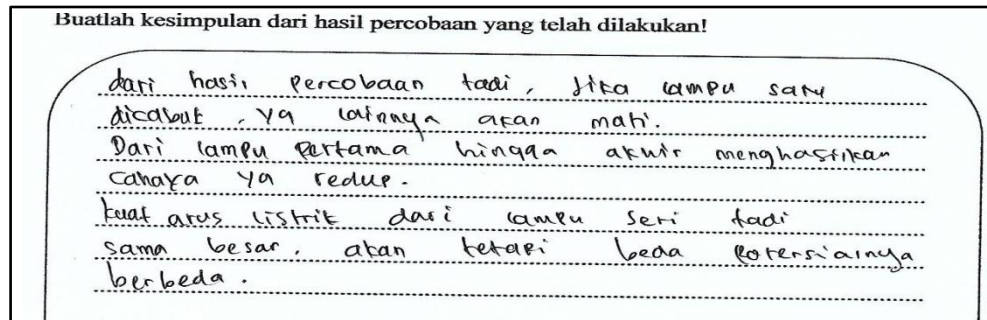 Buatlah kesimpulan dari hasil percobaan yang telah dilakukan!
dari hasil percobaan tadi, jika lampu satu
dicabut, yg lainnya akan mati.
Dari lampu pertama hingga akhir menghasilkan
cahaya yg redup.
kuat arus listrik dari lampu seri tadi
sama besar, akan tetapi beda potensialnya
berbeda.